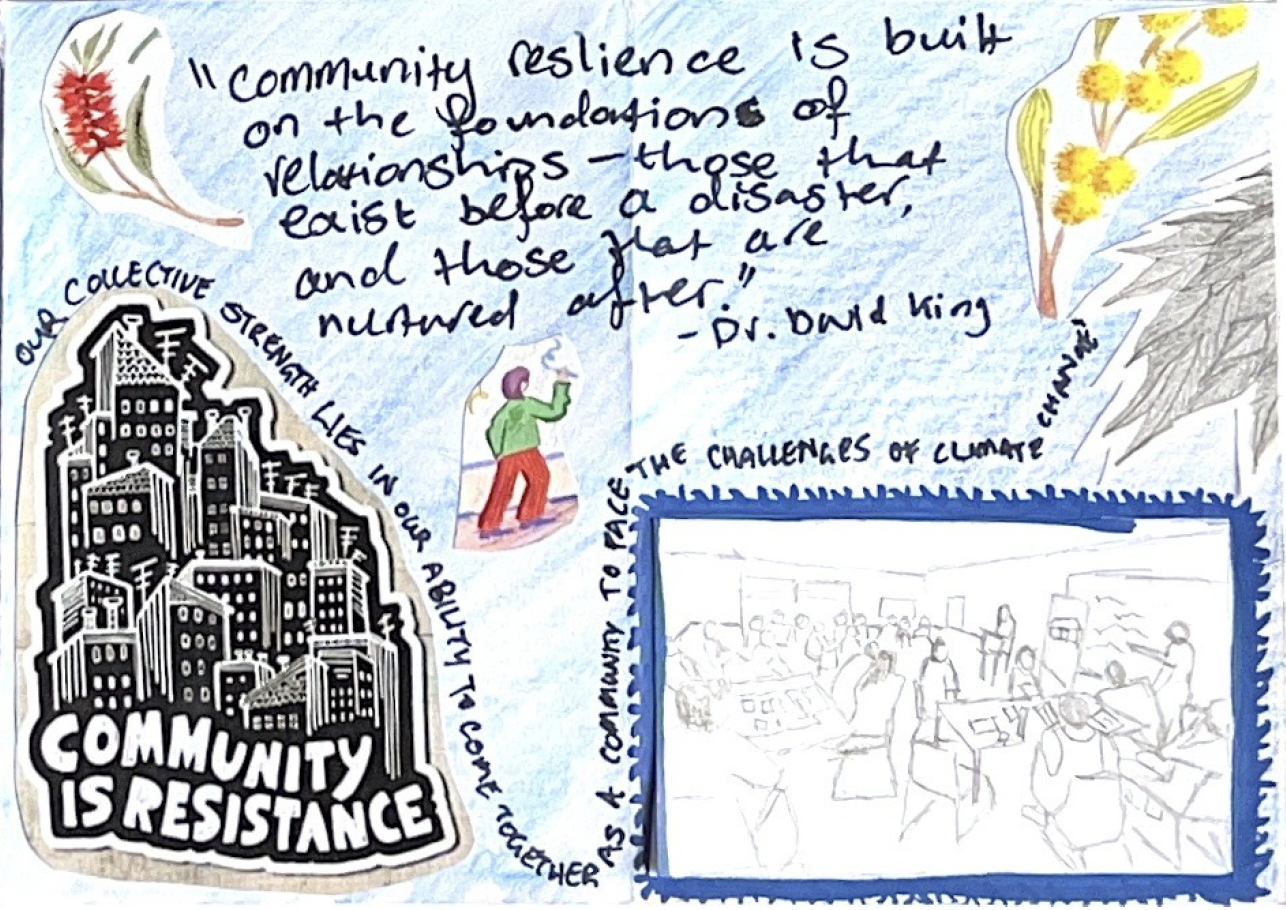 "Community reslience is built
on the foundations of
relationships – those that
exist before a disaster,
and those that are
nurtured after."
- Dr. David King
OUR COLLECTIVE STRENGTH LIES IN OUR ABILITY TO COME TOGETHER AS A COMMUNITY TO FACE THE CHALLENGES OF CLIMATE CHANGE
COMMUNITY
IS RESISTANCE